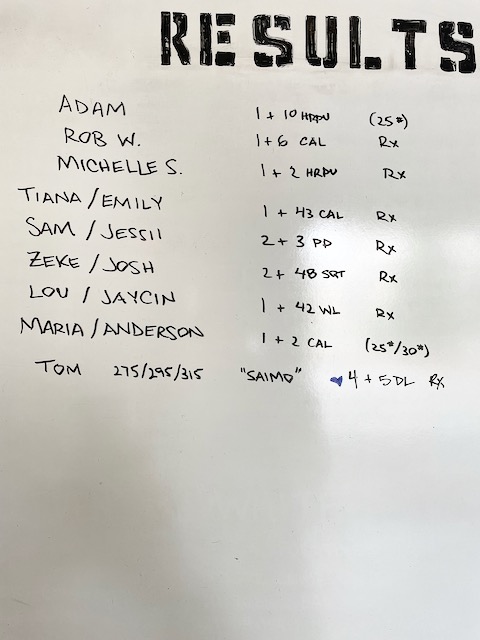 RESULTS
ADAM 1 + 10 HRPU (25#)
ROB W. 1 + 6 CAL Rx
MICHELLE S. 1 + 2 HRPU Rx
TIANA / EMILY 1 + 43 CAL Rx
SAM / JESSII 2 + 3 PD Rx
ZEKE / JOSH 2 + 48 SQT Rx
LOU / JAYCIN 1 + 42 WL Rx
MARIA / ANDERSON 1 + 2 CAL (25#/30#)
TOM 275/295/315 "SAIMO" 4 + 5 DL Rx